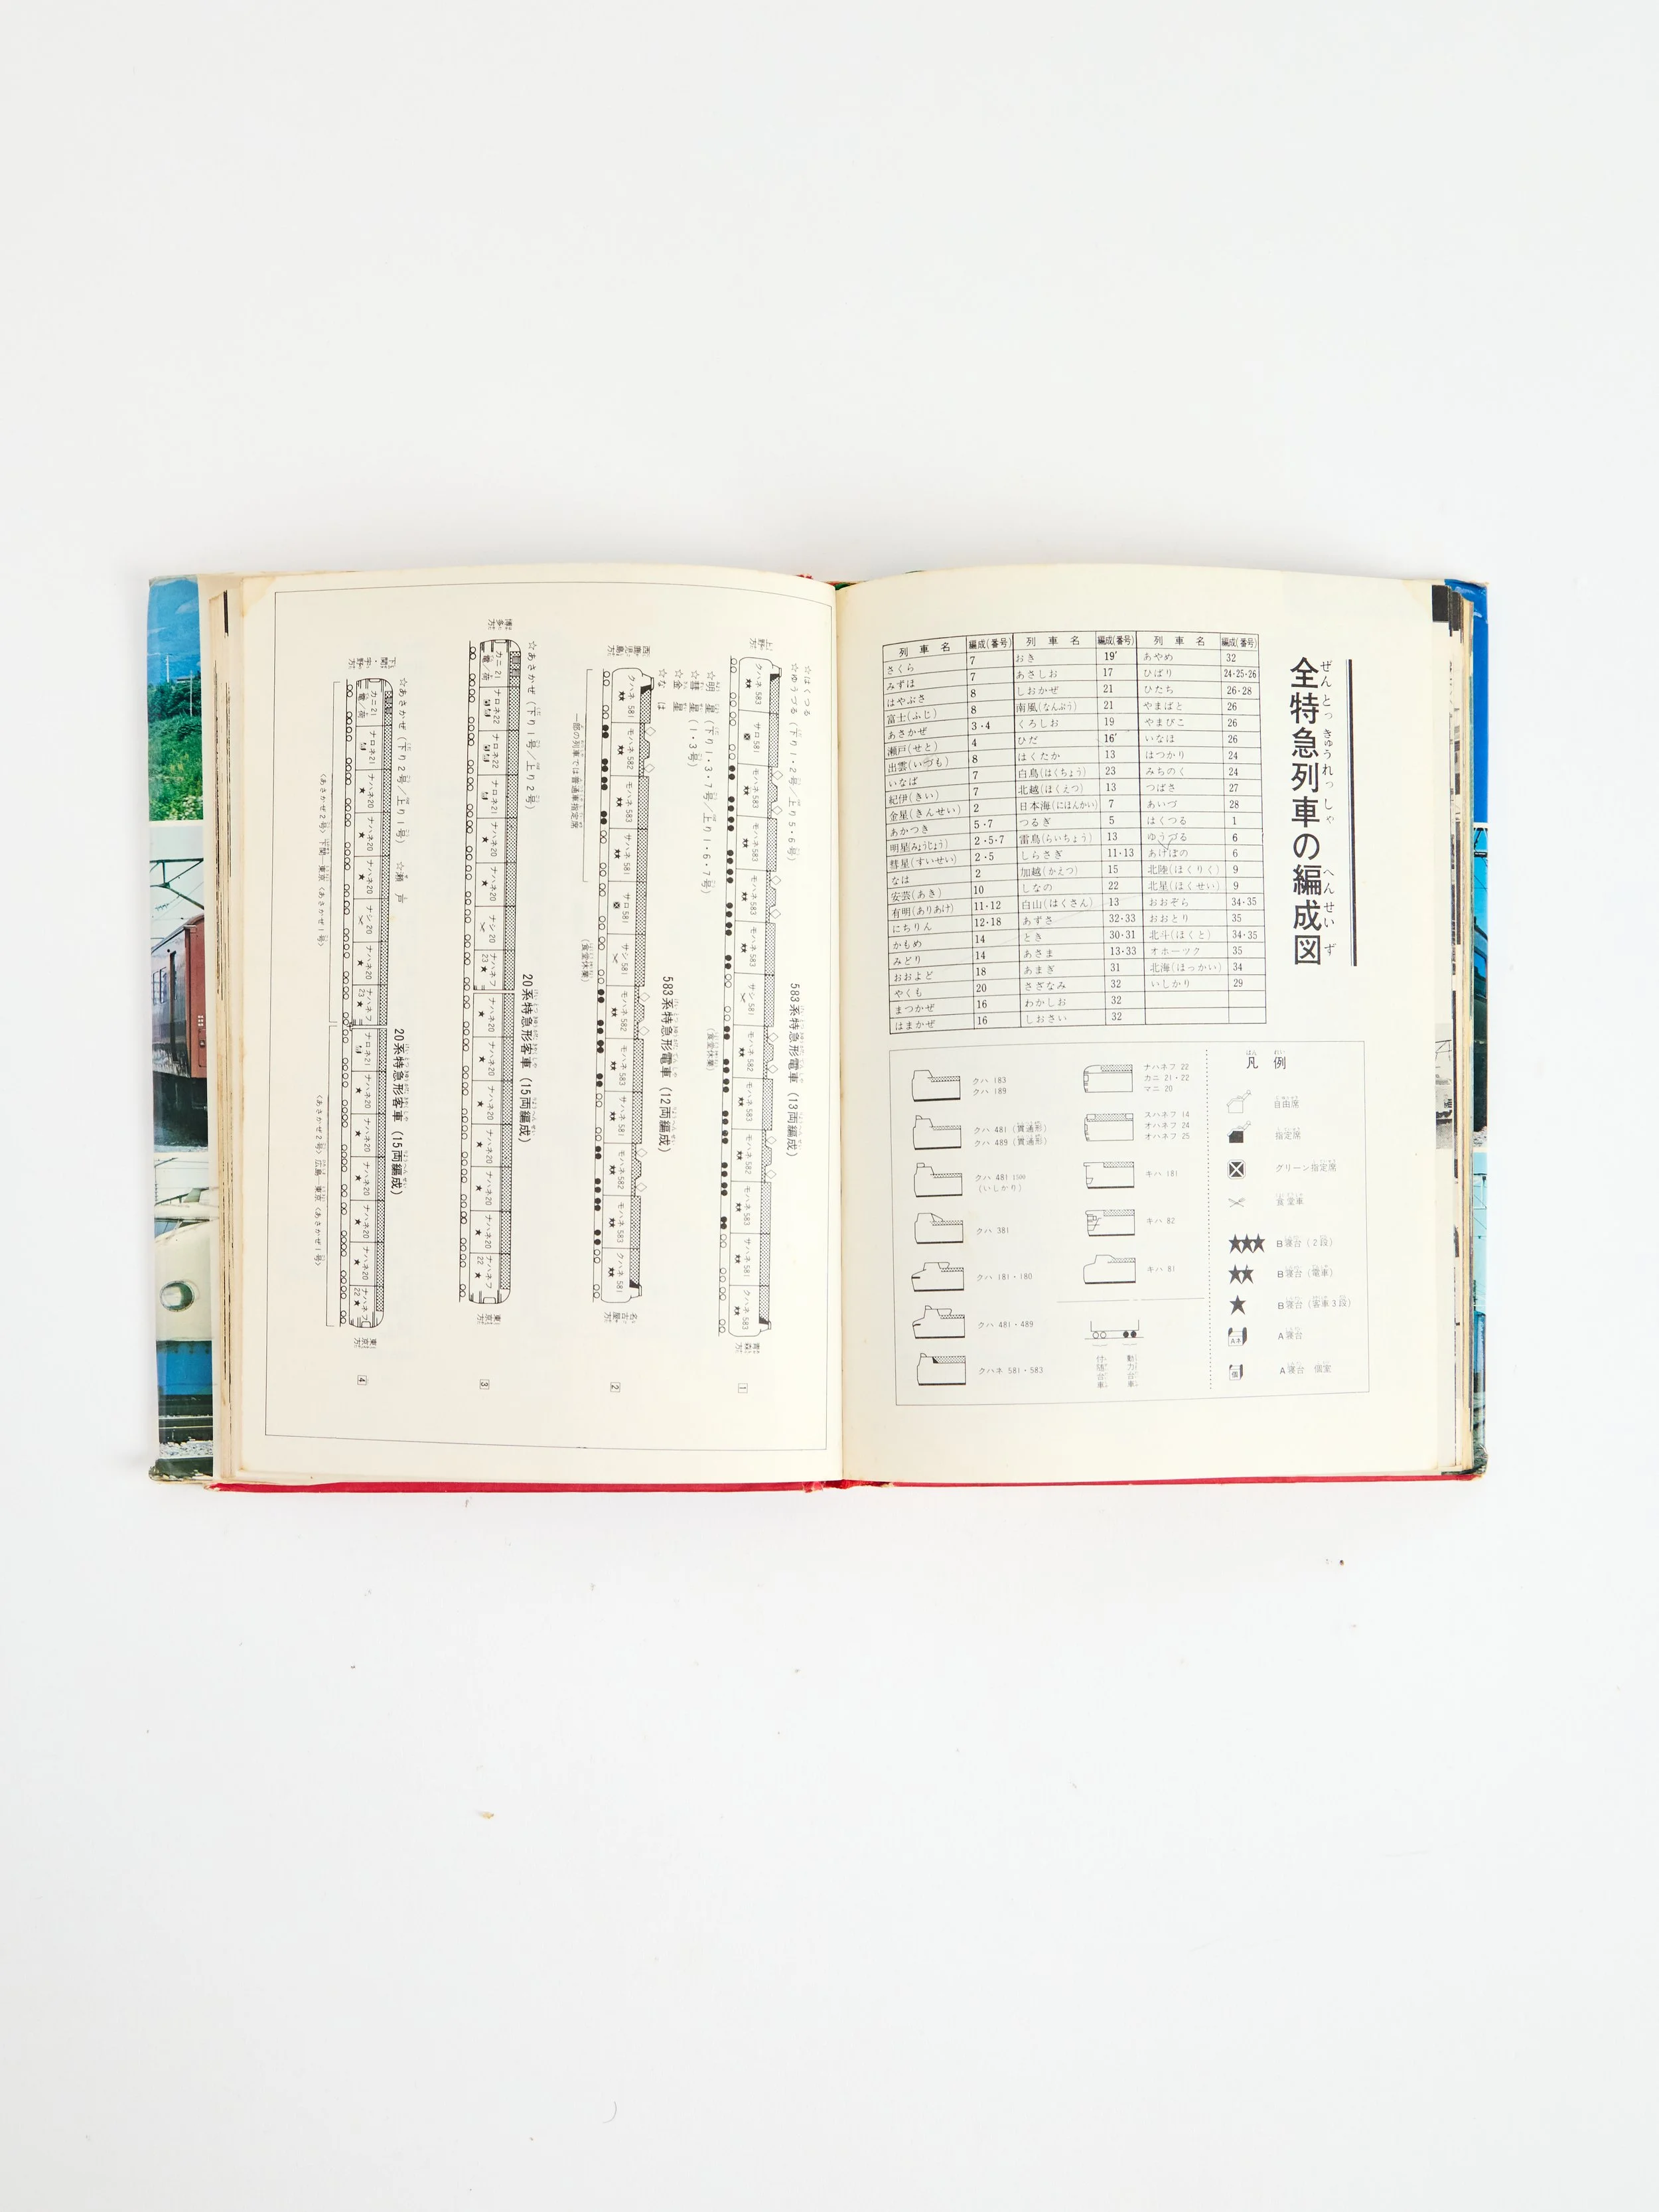 全特急列車の編成図
ぜんとっきゅうれっしゃ へんせいず
列車名 編成(番号) 列車名 編成(番号) 列車名 編成(番号)
さくら 7 おき 19' あやめ 32
みずほ 7 あさしお 17 ひばり 24・25・26
はやぶさ 8 しおかぜ 21 ひたち 26・28
富士(ふじ) 8 南風(なんぷう) 21 やまばと 26
あさかぜ 3・4 くろしお 19 やまびこ 26
瀬戸(せと) 4 ひだ 16' いなほ 26
出雲(いづも) 8 はくたか 13 はつかり 24
いなば 7 白鳥(はくちょう) 23 みちのく 24
紀伊(きい) 7 北越(ほくえつ) 13 つばさ 27
金星(きんせい) 2 日本海(にほんかい) 7 あいづ 28
あかつき 5・7 つるぎ 5 はくつる 1
明星(みょうじょう) 2・5・7 雷鳥(らいちょう) 13 ゆうづる 6
彗星(すいせい) 2・5 しらさぎ 11・13 あけぼの 6
なは 2 加越(かえつ) 15 北陸(ほくりく) 9
安芸(あき) 10 しなの 22 北星(ほくせい) 9
有明(ありあけ) 11・12 白山(はくさん) 13 おおぞら 34・35
にちりん 12・18 あずさ 32・33 おおとり 35
かもめ 14 とき 30・31 北斗(ほくと) 34・35
みどり 14 あさま 13・33 オホーツク 35
おおよど 18 あまぎ 31 北海(ほっかい) 34
やくも 20 さざなみ 32 いしかり 29
まつかぜ 16 わかしお 32
はまかぜ 16 しおさい 32
凡例
自由席
指定席
グリーン指定席
食堂車
B寝台(2段)
B寝台(電車)
B寝台(客車3段)
A寝台
A寝台 個室
ナハネフ 22
カニ 21・22
マニ 20
スハネフ 14
オハネフ 24
オハネフ 25
キハ 181
キハ 82
キハ 81
動力台車
付随台車
クハ 183
クハ 189
クハ 481 (貫通形)
クハ 489 (貫通形)
クハ 481 1500
(いしかり)
クハ 381
クハ 181・180
クハ 481・489
クハネ 581・583
☆はくつる
☆ゆうづる(下り1・2号/上り5・6号)
583系特急形電車(13両編成)
上野方
クハネ583 サロ581 モハネ583 モハネ582 モハネ583 モハネ583 サシ581 モハネ582 モハネ583 モハネ582 モハネ583 サハネ581 クハネ583
青森方
1
☆明星(下り1・3・7号/上り1・6・7号)
☆彗星(1・3号)
☆金星
☆なは
(食堂休業)
583系特急形電車(12両編成)
西鹿児島方
クハネ581 モハネ582 モハネ583 サハネ581 サロ581 サシ581 モハネ582 モハネ583 サハネ581 モハネ582 モハネ583 クハネ581
名古屋方
(食堂休業)
一部の列車では普通車指定席
2
☆あさかぜ(下り1号/上り2号)
20系特急形客車(15両編成)
博多方
カニ21 ナロネ22 ナロネ22 ナロネ21 ナハネ20 ナハネ20 ナシ20 ナハネフ23 ナハネ20 ナハネ20 ナハネ20 ナハネ20 ナハネ20 ナハネ20 ナハネフ22
東京方
3
☆あさかぜ(下り2号/上り1号) ☆瀬戸
20系特急形客車(15両編成)
下関・宇野方
カニ21 ナロネ21 ナハネ20 ナハネ20 ナハネ20 ナシ20 ナハネ20 ナハネフ23 ナロネ21 ナハネ20 ナハネ20 ナハネ20 ナハネ20 ナハネ20 ナハネフ22
東京方
〈あさかぜ2号〉下関―東京〈あさかぜ1号〉
〈あさかぜ2号〉広島―東京〈あさかぜ1号〉
4